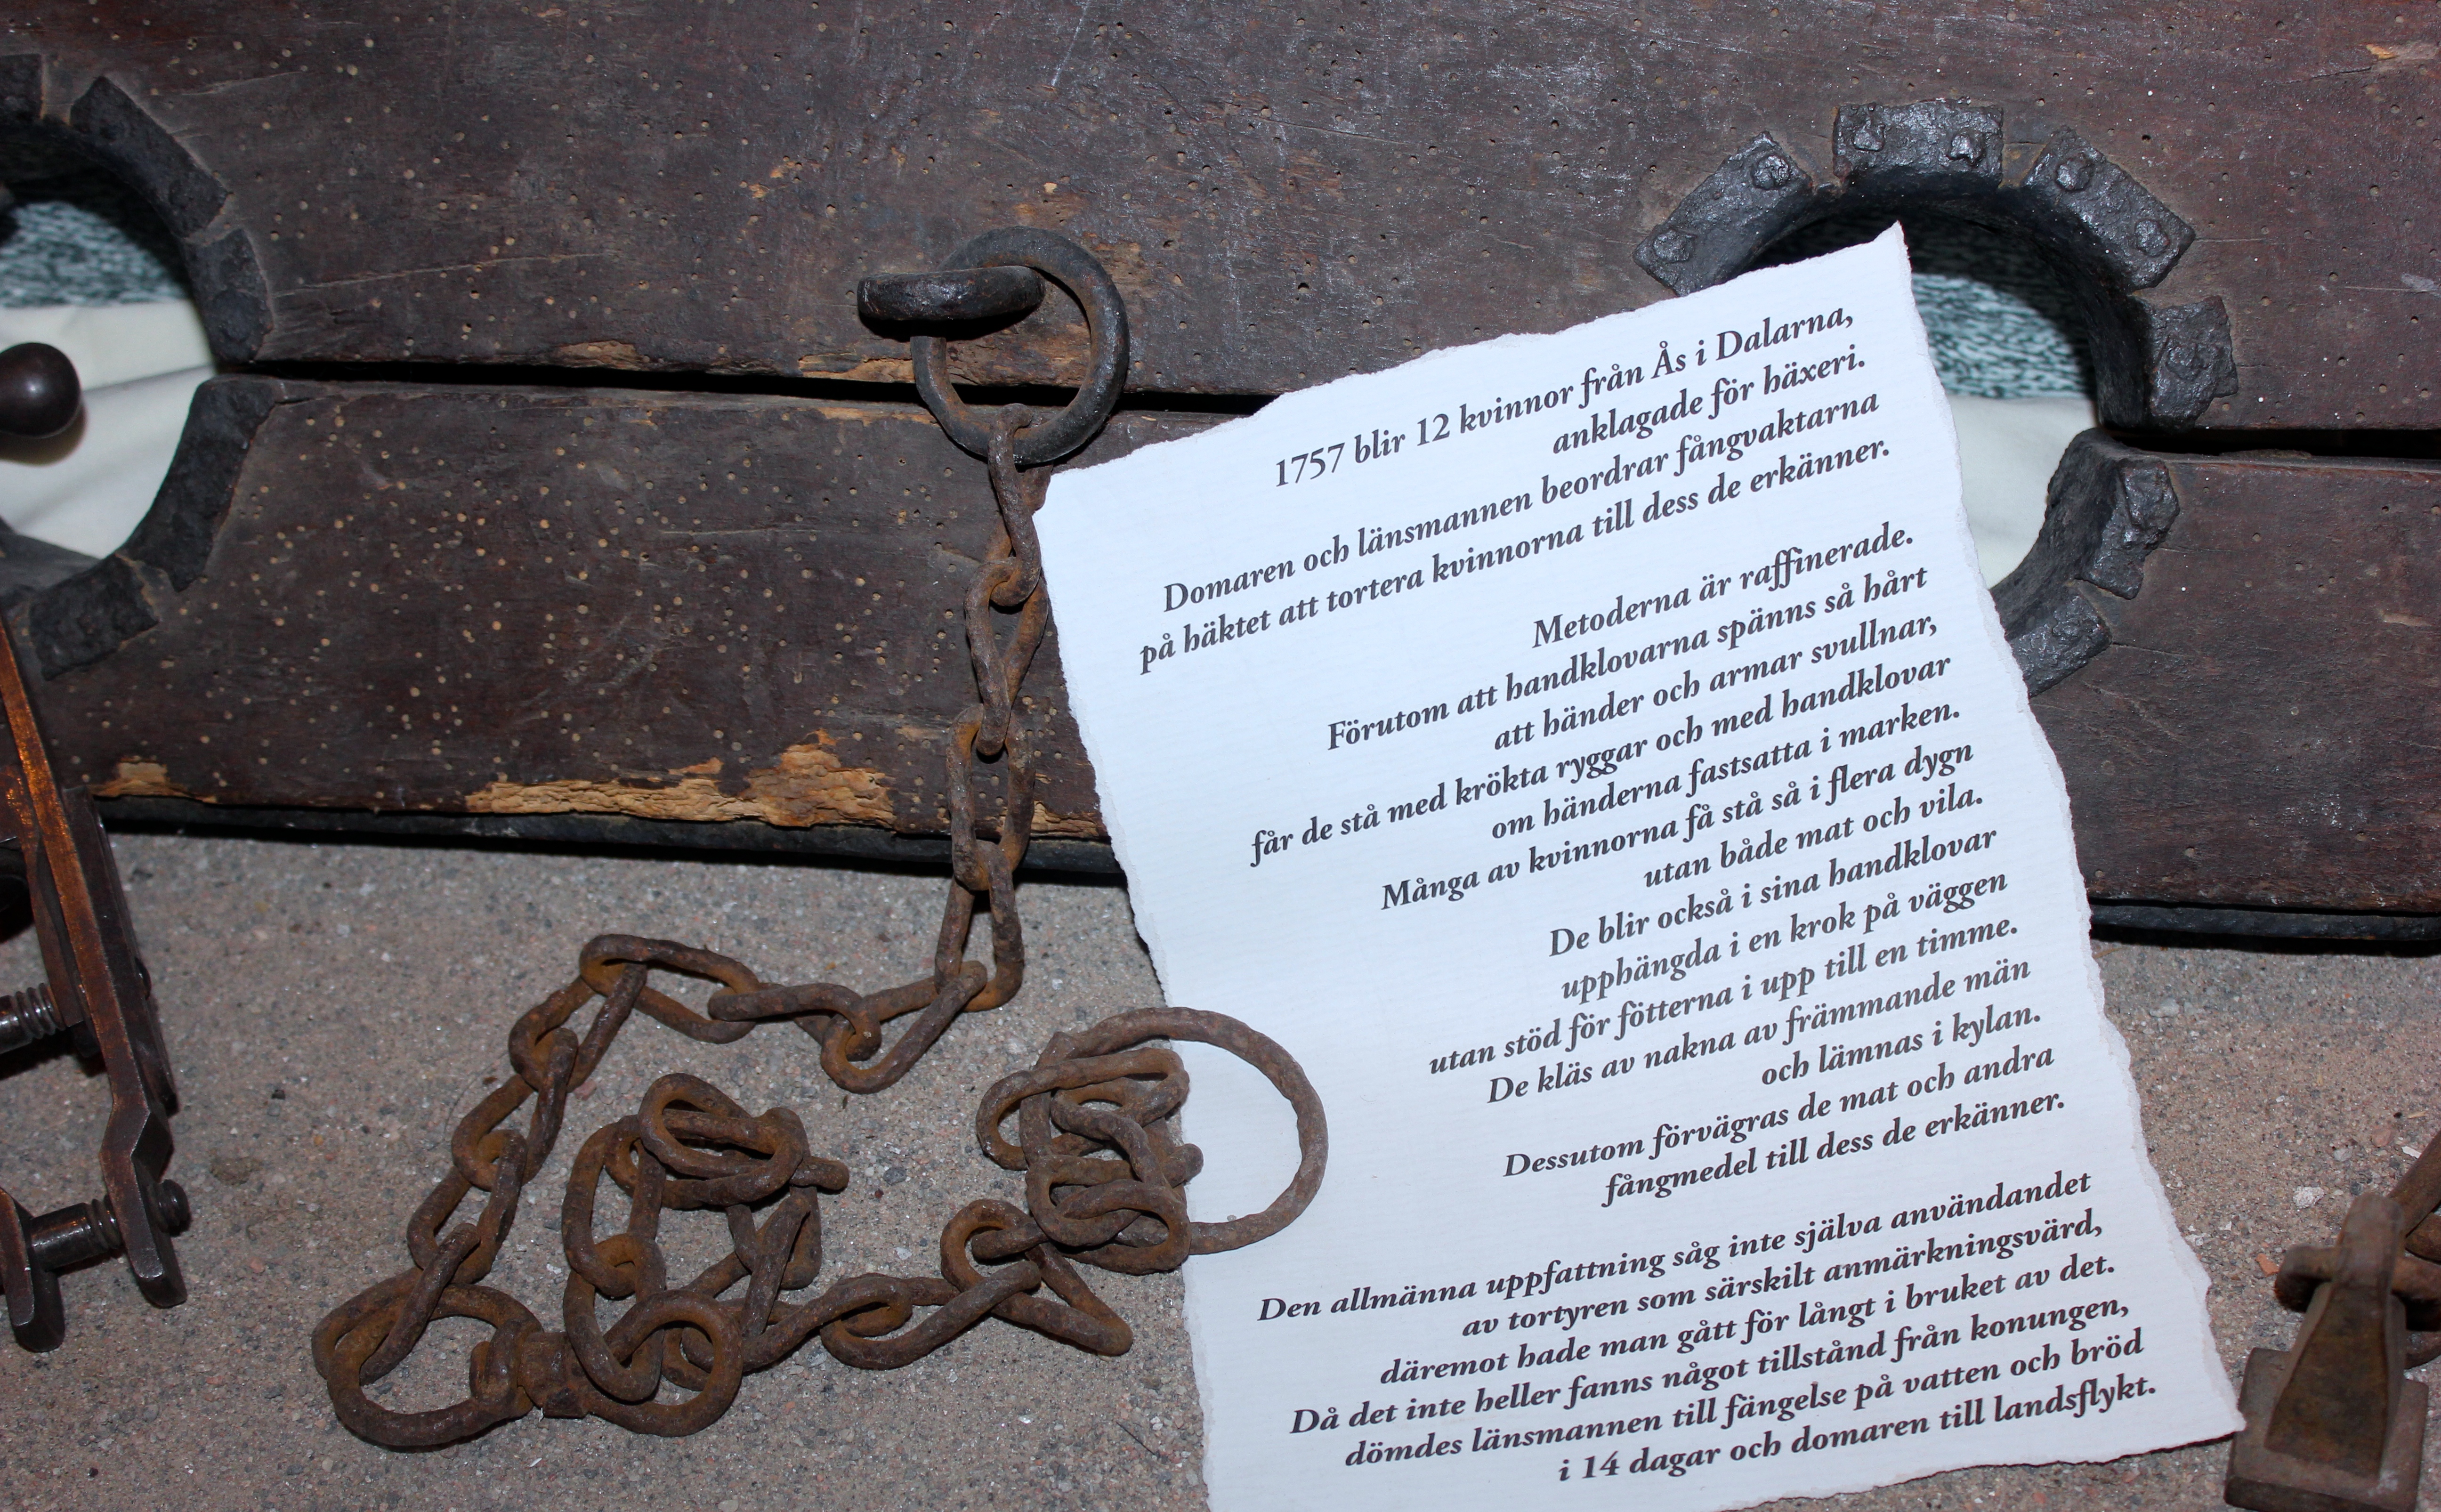 1757 blir 12 kvinnor från Ås i Dalarna,
anklagade för häxeri.
Domaren och länsmannen beordrar fångvaktarna
på häktet att tortera kvinnorna till dess de erkänner.
Metoderna är raffinerade.
Förutom att handklovarna spänns så hårt
att händer och armar svullnar,
får de stå med krökta ryggar och med handklovar
om händerna fastsatta i marken.
Många av kvinnorna få stå så i flera dygn
utan både mat och vila.
De blir också i sina handklovar
upphängda i en krok på väggen
utan stöd för fötterna i upp till en timme.
De kläs av nakna av främmande män
och lämnas i kylan.
Dessutom förvägras de mat och andra
fångmedel till dess de erkänner.
Den allmänna uppfattning såg inte själva användandet
av tortyren som särskilt anmärkningsvärd,
däremot hade man gått för långt i bruket av det.
Då det inte heller fanns något tillstånd från konungen,
dömdes länsmannen till fängelse på vatten och bröd
i 14 dagar och domaren till landsflykt.